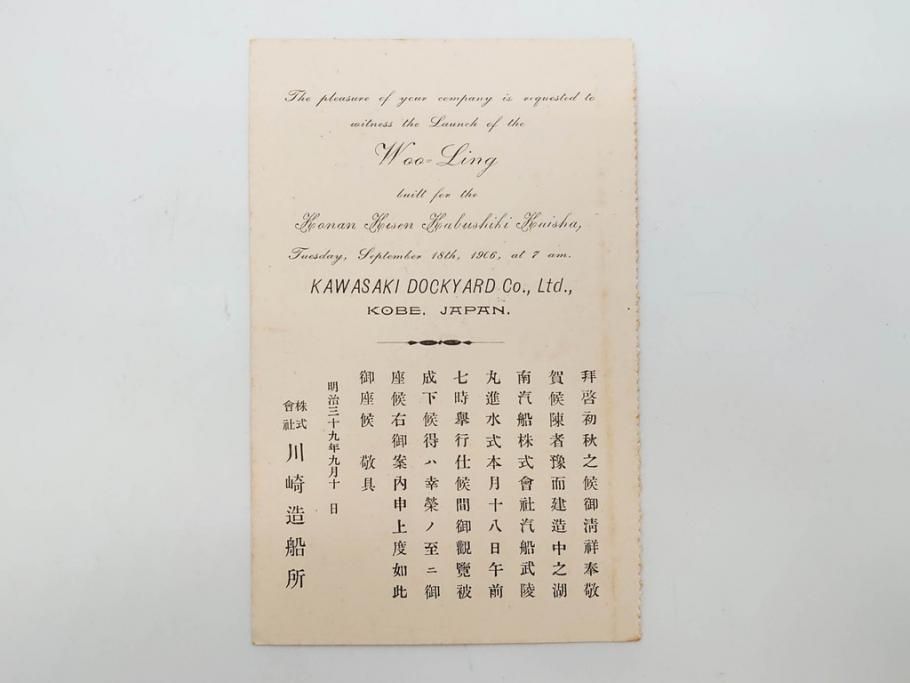 The pleasure of your company is requested to
witness the Launch of the
Woo=Ling
built for the
Konan Kisen Kabushiki Kaisha,
Tuesday, September 18th, 1906, at 7 am.
KAWASAKI DOCKYARD Co., Ltd.,
KOBE, JAPAN.
拜啓初秋之候御淸祥奉敬
賀候陳者豫而建造中之湖
南汽船株式會社汽船武陵
丸進水式本月十八日午前
七時擧行仕候間御觀覽被
成下候得ハ幸榮ノ至ニ御
座候右御案內申上度如此
御座候 敬具
明治三十九年九月十 日
株式會社 川崎造船所